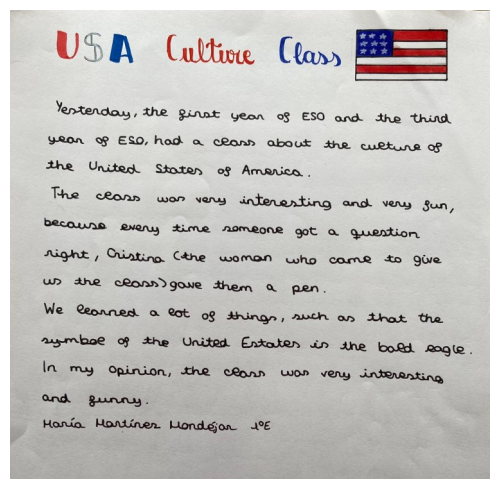 USA Culture Class
Yesterday, the first year of ESO and the third
year of ESO, had a class about the culture of
the United States of America.
The class was very interesting and very fun,
because every time someone got a question
right, Cristina (the woman who came to give
us the class) gave them a pen.
We learned a lot of things, such as that the
symbol of the United Estates is the bald eagle.
In my opinion, the class was very interesting
and funny.
María Martínez Mondéjar 1ºE